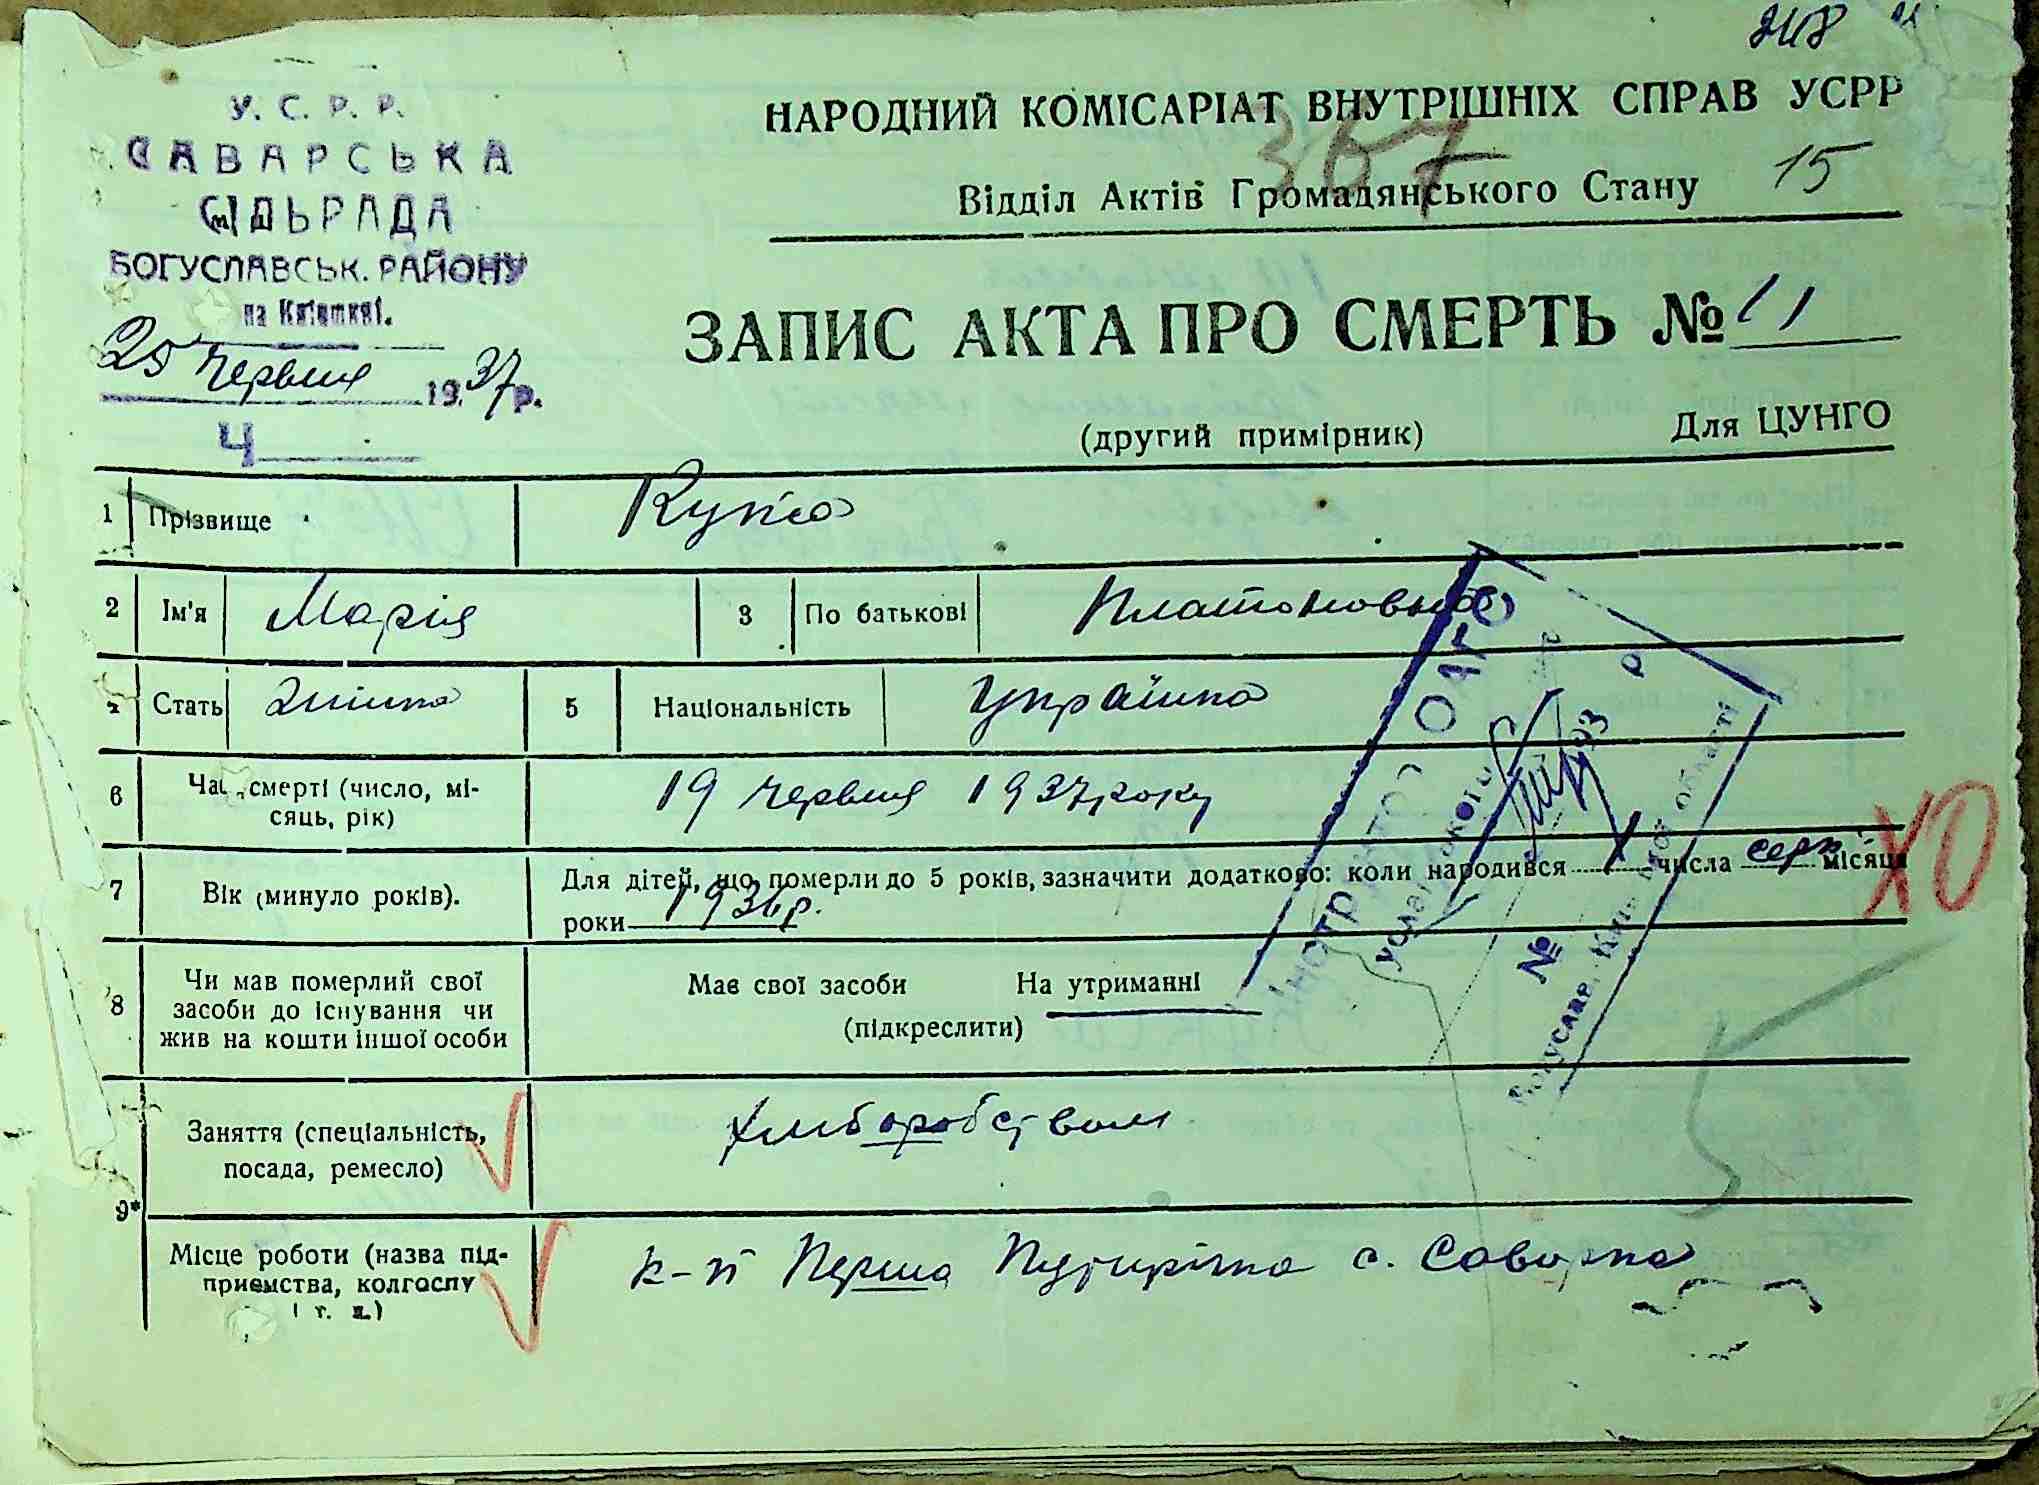 У. С. Р. Р.
САВАРСЬКА
СІЛЬРАДА
БОГУСЛАВСЬК. РАЙОНУ
на Київщині.
25 червня 1937 р.
Ч
248
НАРОДНИЙ КОМІСАРІАТ ВНУТРІШНІХ СПРАВ УСРР
367
Відділ Актів Громадянського Стану 15
ЗАПИС АКТА ПРО СМЕРТЬ № 11
(другий примірник) Для ЦУНГО
1 Прізвище
2 Ім'я Марія 3 По батькові Платоновна
Стать жінка 5 Національність Українка
6 Час смерті (число, мі-
сяць, рік) 19 червня 1937 року
7 Вік (минуло років). Для дітей, що померли до 5 років, зазначити додатково: коли народився числа серп місяця
роки 1936 р.
8 Чи мав померлий свої
засоби до існування чи
жив на кошти іншої особи
Має свої засоби На утриманні
(підкреслити)
9* Заняття (спеціальність,
посада, ремесло) хліборобством
Місце роботи (назва під-
приємства, колгоспу
і т. д.) к-п Перша с. Саварка
ХО
ОАГС
№
Богуслав, Київ області